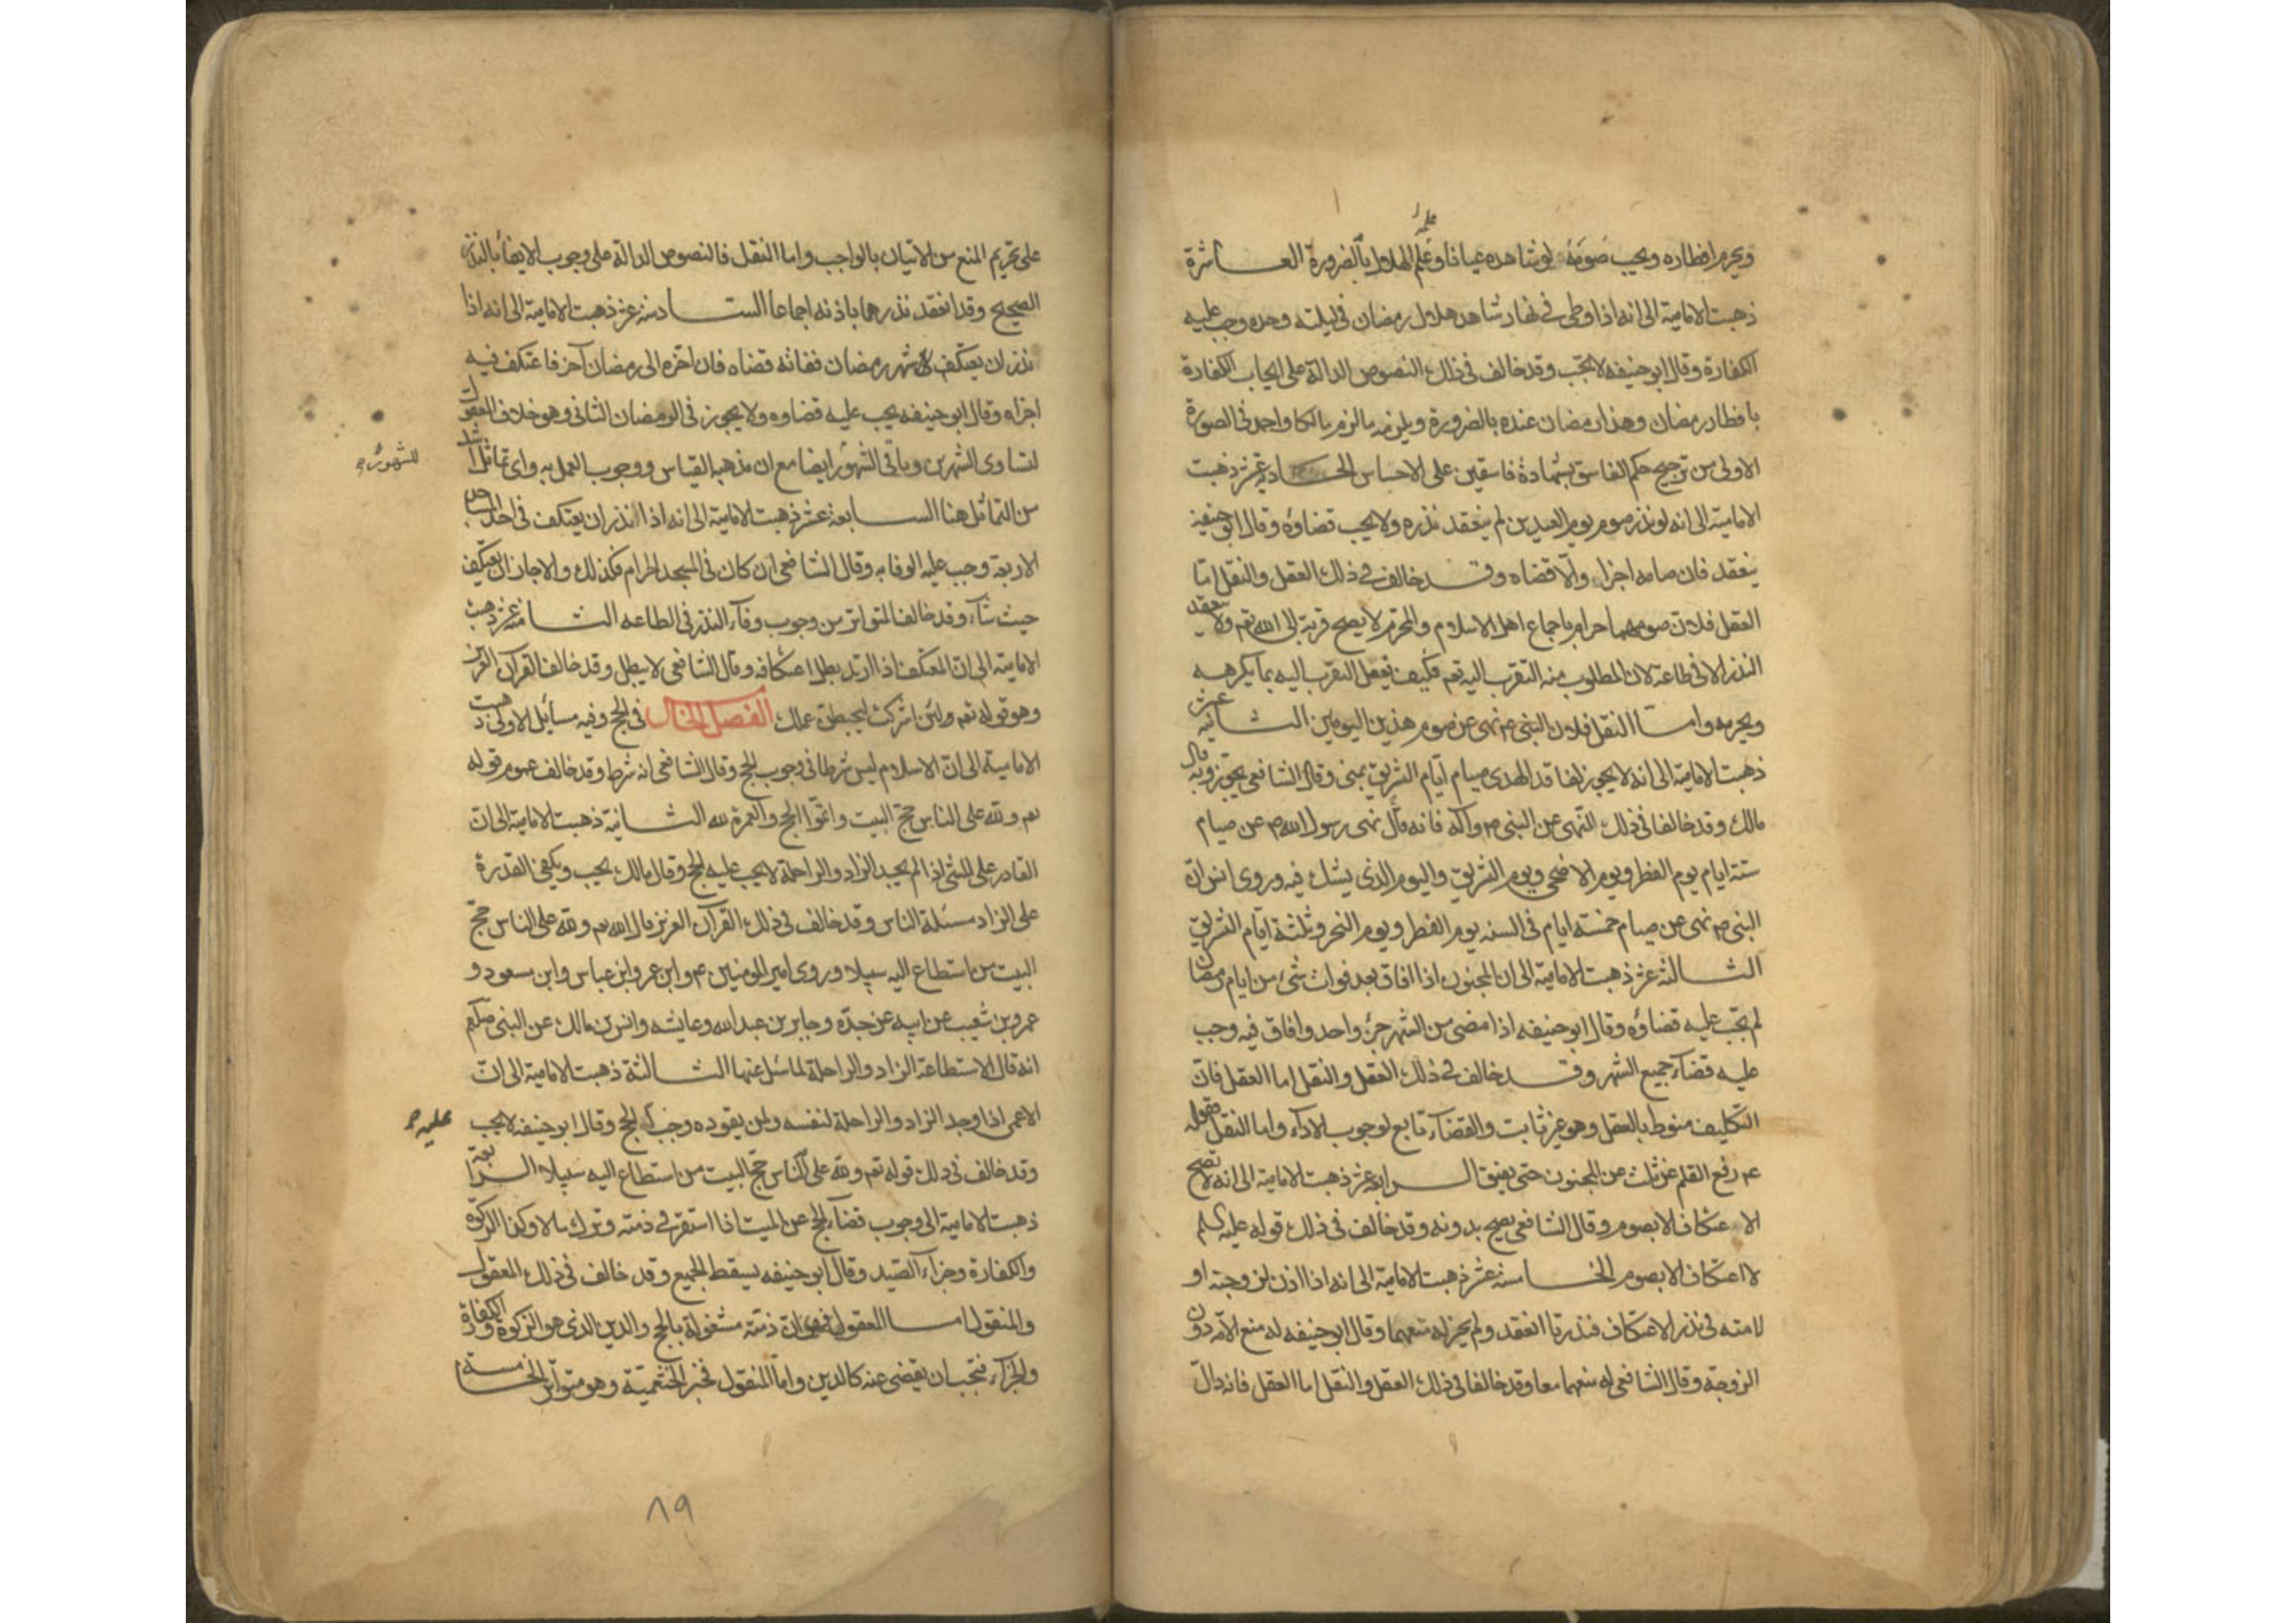 ويحرم افطاره ويجب صومه لو شاهده عيانا وعلم الهلال بالضرورة العاشرة
ذهبت الامامية الى انه اذا وطى في نهار شاهد هلال رمضان في ليلته وحده وجب عليه
الكفارة وقال ابو حنيفه لا يجب وقد خالف في ذلك النصوص الدالة على ايجاب الكفارة
بافطار رمضان وهذا رمضان عنده بالضرورة ويلزمه ما لزم مالكا واحمد في الصورة
الاولى من ترجيح حكم الفاسق بشهادة فاسقين على الاحساس الحادية عشر ذهبت
الامامية الى انه لو نذر صوم يوم العيدين لم ينعقد نذره ولا يجب قضاؤه وقال ابو حنيفه
ينعقد فان صامه اجزاه والا قضاه وقد خالف في ذلك العقل والنقل اما
العقل فلان صومهما حرام باجماع اهل الاسلام والمحرم لا يصح قربة الى الله تعم ولا ينعقد
النذر الا في طاعة لان المطلوب منه التقرب اليه تعم فكيف يعقل التقرب اليه بما يكرهه
ويحرمه واما النقل فلان النبي ص نهى عن صوم هذين اليومين الثانية عشر
ذهبت الامامية الى انه لا يجوز لفاقد الهدى صيام ايام التشريق بمنى وقال الشافعي يجوز وبه قال
مالك وقد خالفا في ذلك النهى عن النبي ص واله فانه قال نهى رسول الله ص عن صيام
ستة ايام يوم الفطر ويوم الاضحى ويوم التشريق واليوم الذي يشك فيه وروى انس ان
النبي ص نهى عن صيام خمسة ايام في السنه يوم الفطر ويوم النحر وثلثة ايام التشريق
الثالثة عشر ذهبت الامامية الى ان المجنون اذا افاق بعد فوات شئ من ايام رمضان
لم يجب عليه قضاؤه وقال ابو حنيفه اذا مضى من الشهر جزء واحد وافاق فيه وجب
عليه قضاء جميع الشهر وقد خالف في ذلك العقل والنقل اما العقل فان
التكليف منوط بالعقل وهو غير ثابت والقضاء تابع لوجوب الاداء واما النقل فقوله
عم رفع القلم عن ثلث عن المجنون حتى يفيق الرابعة عشر ذهبت الامامية الى انه لا يصح
الاعتكاف الا بصوم وقال الشافعي يصح بدونه وقد خالف في ذلك قوله عليه السلم
لا اعتكاف الا بصوم الخامسة عشر ذهبت الامامية الى انه اذا اذن لزوجته او
لامته في نذر الاعتكاف فنذرتا انعقد ولم يجز له منعهما وقال ابو حنيفه له منع الامة دون
الزوجة وقال الشافعي له منعهما معا وقد خالفا في ذلك العقل والنقل اما العقل فانه دال
على تحريم المنع من الاتيان بالواجب واما النقل فالنصوص الدالة على وجوب الايفاء بالنذر
الصحيح وقد انعقد نذرهما باذنه اجماعا السادسة عشر ذهبت الامامية الى انه اذا
نذر ان يعتكف شهر رمضان ففاته قضاه فان اخره الى رمضان آخر فاعتكف فيه
اجزاه وقال ابو حنيفه يجب عليه قضاوه ولا يجوز في الرمضان الثاني وهو خلاف المعقول
لتساوى الشهرين وباقى الشهور ايضا مع ان مذهبه القياس ووجوب العمل به واى تماثل اشد
للشهور
من التماثل هنا السابعة عشر ذهبت الامامية الى انه اذا نذر ان يعتكف في احد المساجد
الاربعة وجب عليه الوفا به وقال الشافعي ان كان في المسجد الحرام فكذلك والا جاز ان يعتكف
حيث شآء وقد خالف المتواتر من وجوب وفآء النذر في الطاعه الثامنة عشر ذهبت
الامامية الى ان المعتكف اذا ارتد بطل اعتكافه وقال الشافعي لا يبطل وقد خالف القرآن العزيز
وهو قوله تعم ولئن اشركت ليحبطن عملك الفصل الخامس في الحج وفيه مسائل الاولى ذهبت
الامامية الى ان الاسلام ليس شرطا في وجوب الحج وقال الشافعي انه شرط وقد خالف عموم قوله
تعم ولله على الناس حج البيت واتموا الحج والعمرة لله الثانية ذهبت الامامية الى ان
القادر على المشى اذا لم يجد الزاد والراحلة لا يجب عليه الحج وقال مالك يجب ويكفى القدرة
على الزاد مسئلة الناس وقد خالف في ذلك القرآن العزيز قال الله تعم ولله على الناس حج
البيت من استطاع اليه سبيلا وروى امير المومنين عم وابن عمر وابن عباس وابن مسعود و
عمرو بن شعيب عن ابيه عن جده وجابر بن عبد الله وعايشه وانس بن مالك عن النبي صلعم
انه قال الاستطاعة الزاد والراحلة لما سئل عنها الثالثة ذهبت الامامية الى ان
الاعمى اذا وجد الزاد والراحلة لنفسه ولمن يقوده وجب الحج وقال ابو حنيفه لا يجب
عليه
وقد خالف في ذلك قوله تعم ولله على الناس حج البيت من استطاع اليه سبيلا الرابعة
ذهبت الامامية الى وجوب قضاء الحج عن الميت اذا استقر في ذمته وترك مالا وكذا الزكوة
والكفارة وجزاء الصيد وقال ابو حنيفه يسقط الجميع وقد خالف في ذلك المعقول
والمنقول اما المعقول فهو ان ذمته مشغولة بالحج والدين الذي هو الزكوة والكفارة
والجزاء فتجب ان يقضى عنه كالدين واما المنقول فخبر الخثعمية وهو متواتر الخامسة
٨٩